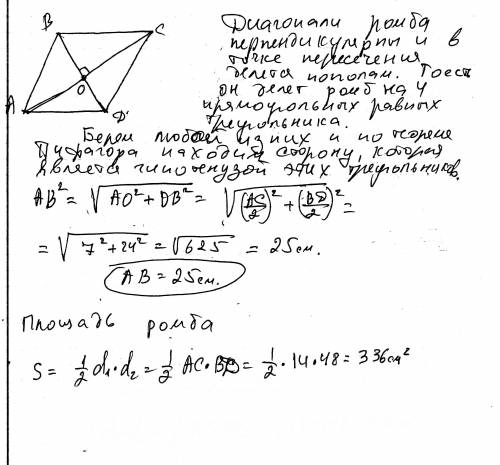 B
C
O
A
D
Диагонали ромба
перпендикулярны и в
точке пересечения
делятся пополам. Тоест
он делет ромб на 4
прямоугольных равных
треугольника.
Берем любой из них и по теореме
Пифагора находим сторону, которая
является гипотенузой этих треугольников.
AB² = √(AO² + OB²) = √((AC/2)² + (BD/2)²) =
= √(7² + 24²) = √625 = 25см.
AB = 25см.
Площадь ромба
S = 1/2 d₁·d₂ = 1/2 AC·BD = 1/2 · 14 · 48 = 336см²